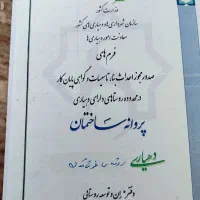 وزارت کشور
سازمان شهرداری ها و دهیاری های کشور
معاونت امور دهیاری ها
فرم های
صدور مجوز احداث بنا، تاسیسات و گواهی پایان کار
در محدوده روستاهای دارای دهیاری
پروانه ساختمان
دهیاری
دفتر عمران و توسعه روستایی